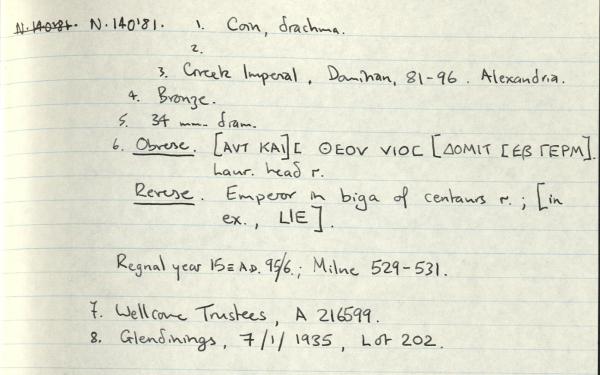 N.140'81. N.140'81. 1. Coin, drachma.
2.
3. Greek Imperial, Domitian, 81-96. Alexandria.
4. Bronze.
5. 34 mm. diam.
6. Obverse. [AVT KAI]C ΘEOV VIOC [ΔOMIT CEB ΓEPM].
Laur. head r.
Reverse. Emperor in biga of centaurs r.; [in
ex., LIE].
Regnal year 15 = A.D. 95/6.; Milne 529-531.
7. Wellcome Trustees, A 216599.
8. Glendinings, 7/1/1935, Lot 202.